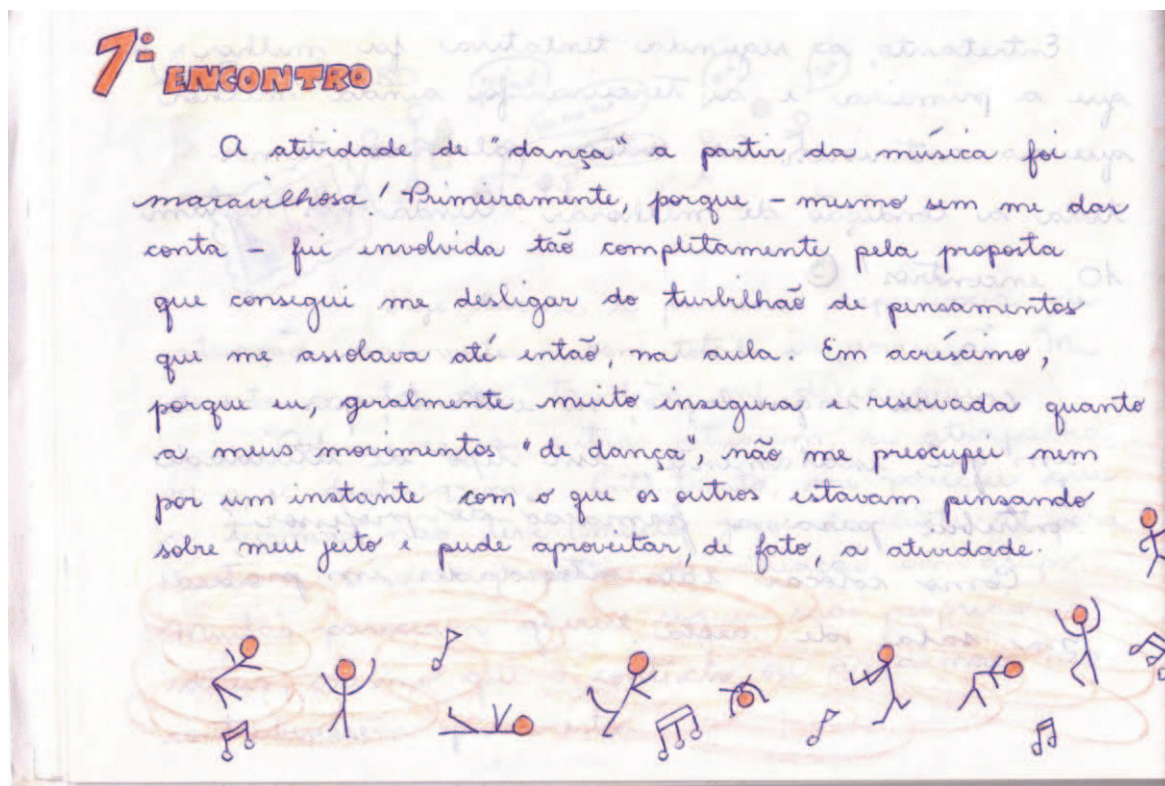 7º ENCONTRO
A atividade de "dança" a partir da música foi
maravilhosa! Primeiramente, porque - mesmo sem me dar
conta - fui envolvida tão completamente pela proposta
que consegui me desligar do turbilhão de pensamentos
que me assolava até então, na aula. Em acréscimo,
porque eu, geralmente muito insegura e reservada quanto
a meus movimentos "de dança", não me preocupei nem
por um instante com o que os outros estavam pensando
sobre meu jeito e pude aproveitar, de fato, a atividade.